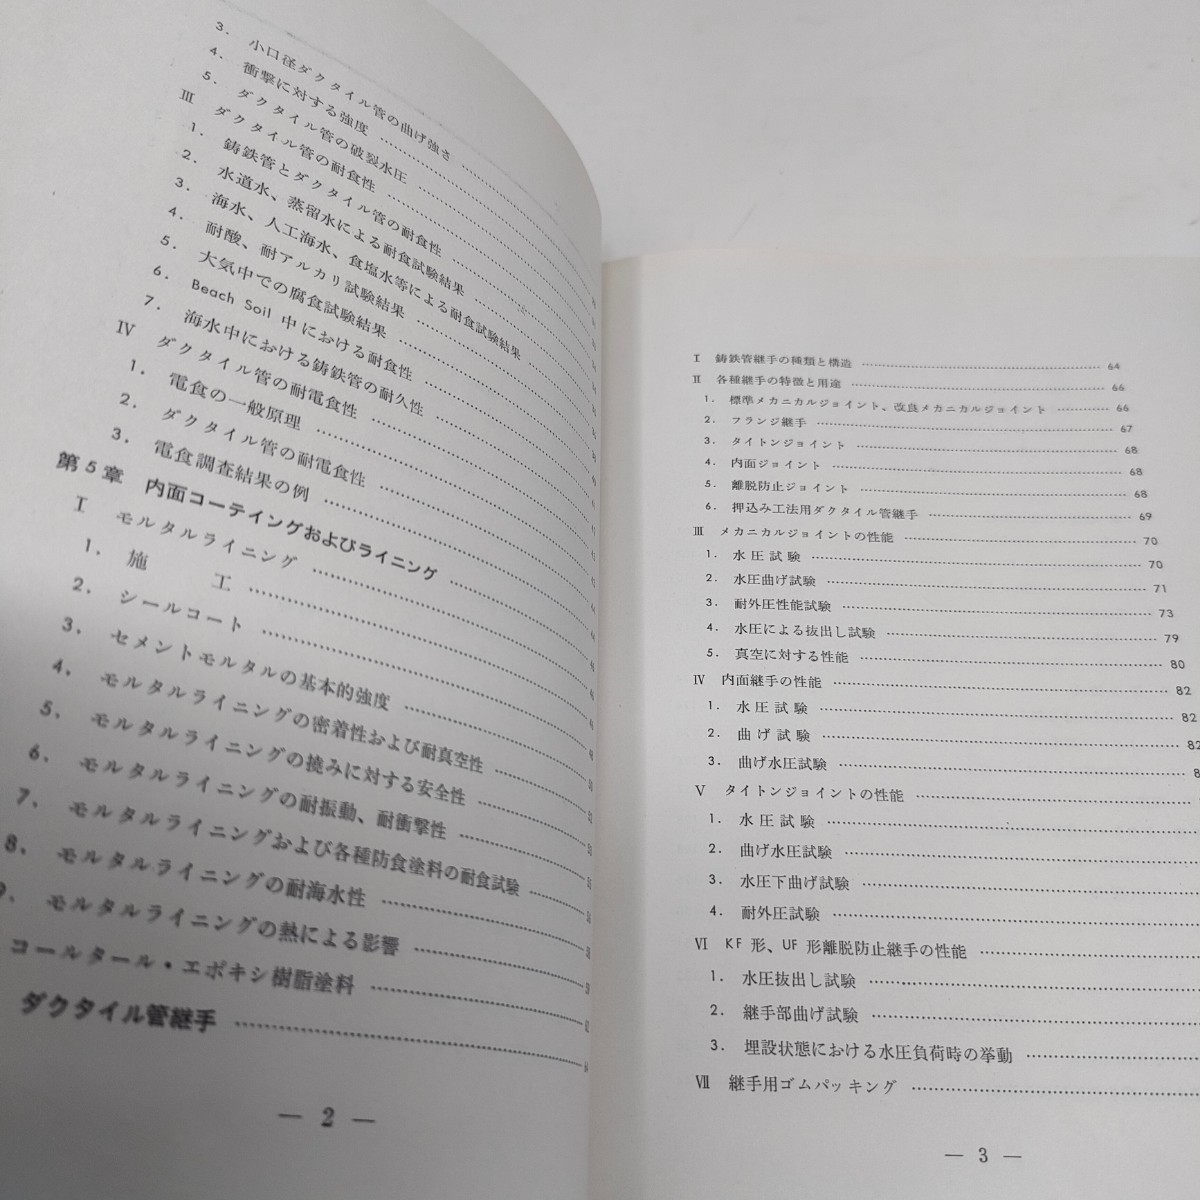 3. 小口径ダクタイル管の曲げ強さ
4. 衝撃に対する強度
5. ダクタイル管の破裂水圧
Ⅲ ダクタイル管の耐食性
1. 鋳鉄管とダクタイル管の耐食性
2. 水道水、蒸留水による耐食試験結果
3. 海水、人工海水、食塩水等による耐食試験結果
4. 耐酸、耐アルカリ試験結果
5. 大気中での腐食試験結果
6. Beach Soil 中における耐食性
7. 海水中における鋳鉄管の耐久性
Ⅳ ダクタイル管の耐電食性
1. 電食の一般原理
2. ダクタイル管の耐電食性
3. 電食調査結果の例
第5章 内面コーテイングおよびライニング
Ⅰ モルタルライニング
1. 施工
2. シールコート
3. セメントモルタルの基本的強度
4. モルタルライニングの密着性および耐真空性
5. モルタルライニングの撓みに対する安全性
6. モルタルライニングの耐振動、耐衝撃性
7. モルタルライニングおよび各種防食塗料の耐食試験
8. モルタルライニングの耐海水性
9. モルタルライニングの熱による影響
コールタール・エポキシ樹脂塗料
ダクタイル管継手
— 2 —
Ⅰ 鋳鉄管継手の種類と構造 64
Ⅱ 各種継手の特徴と用途 66
1. 標準メカニカルジョイント、改良メカニカルジョイント 66
2. フランジ継手 67
3. タイトンジョイント 68
4. 内面ジョイント 68
5. 離脱防止ジョイント 68
6. 押込み工法用ダクタイル管継手 69
Ⅲ メカニカルジョイントの性能 70
1. 水圧試験 70
2. 水圧曲げ試験 71
3. 耐外圧性能試験 73
4. 水圧による抜出し試験 79
5. 真空に対する性能 80
Ⅳ 内面継手の性能 82
1. 水圧試験 82
2. 曲げ試験 82
3. 曲げ水圧試験
Ⅴ タイトンジョイントの性能
1. 水圧試験
2. 曲げ水圧試験
3. 水圧下曲げ試験
4. 耐外圧試験
Ⅵ KF形、UF形離脱防止継手の性能
1. 水圧抜出し試験
2. 継手部曲げ試験
3. 埋設状態における水圧負荷時の挙動
Ⅶ 継手用ゴムパッキング
— 3 —